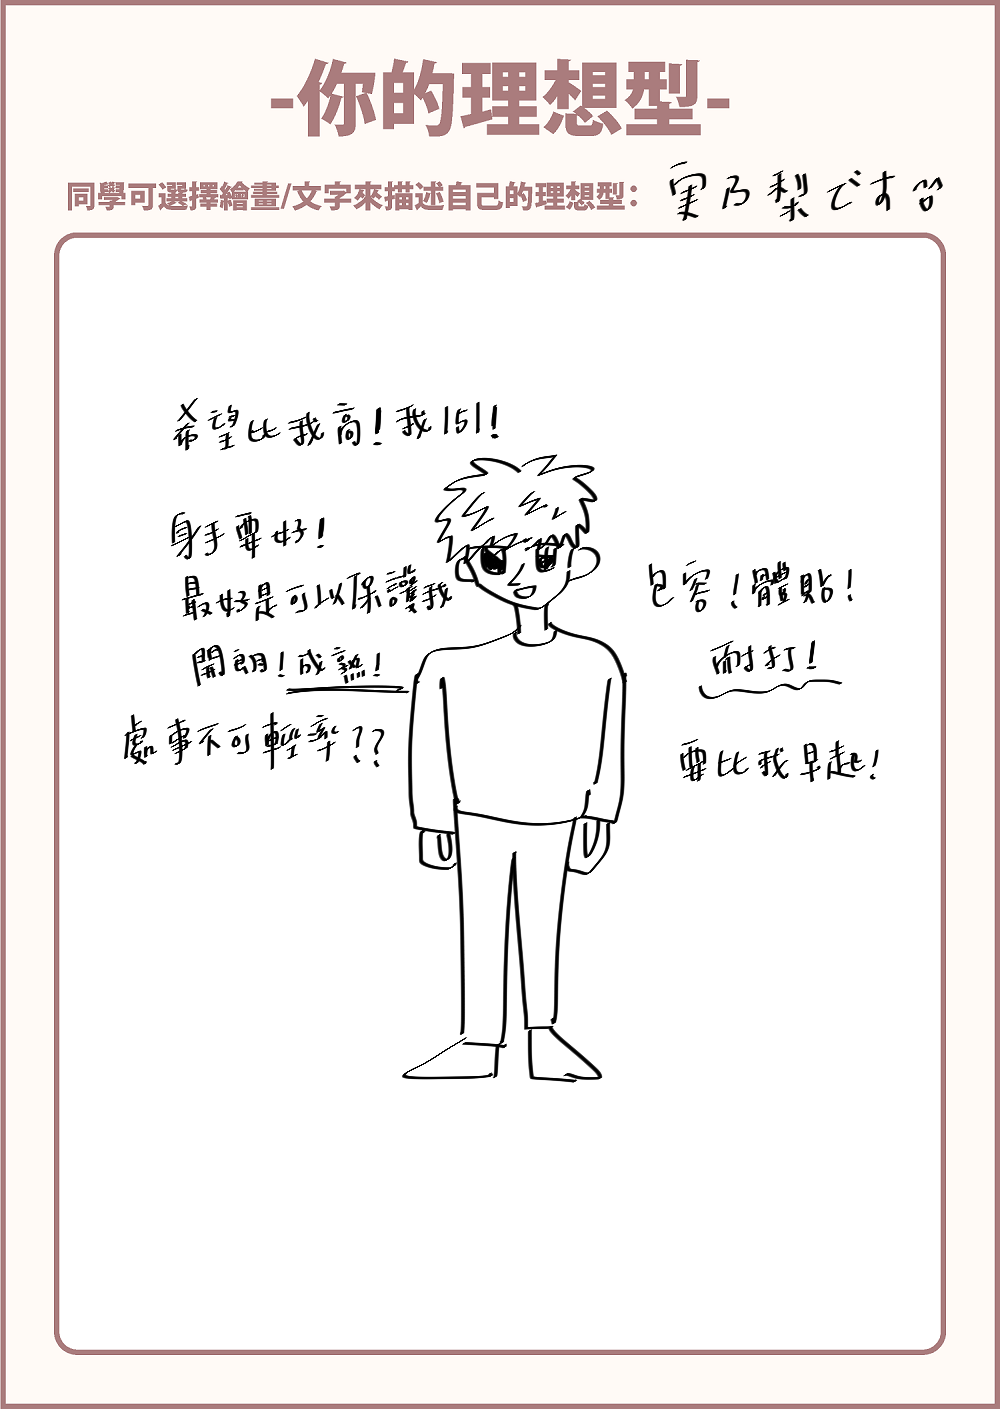 -你的理想型-
同學可選擇繪畫/文字來描述自己的理想型：
実乃梨です
希望比我高！我151！
身手要好！
最好是可以保護我
開朗！成熟！
處事不可輕率？？
包容！體貼！
耐打！
要比我早起！